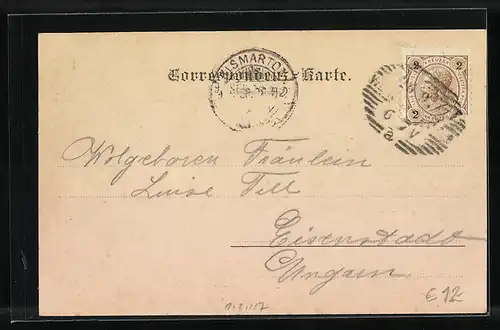 Correspondenz-Karte.
KISMARTON
2 2
2 2
Wolgeboren Fräulein
Luise Till
Eisenstadt
Ungarn
€ 12.-